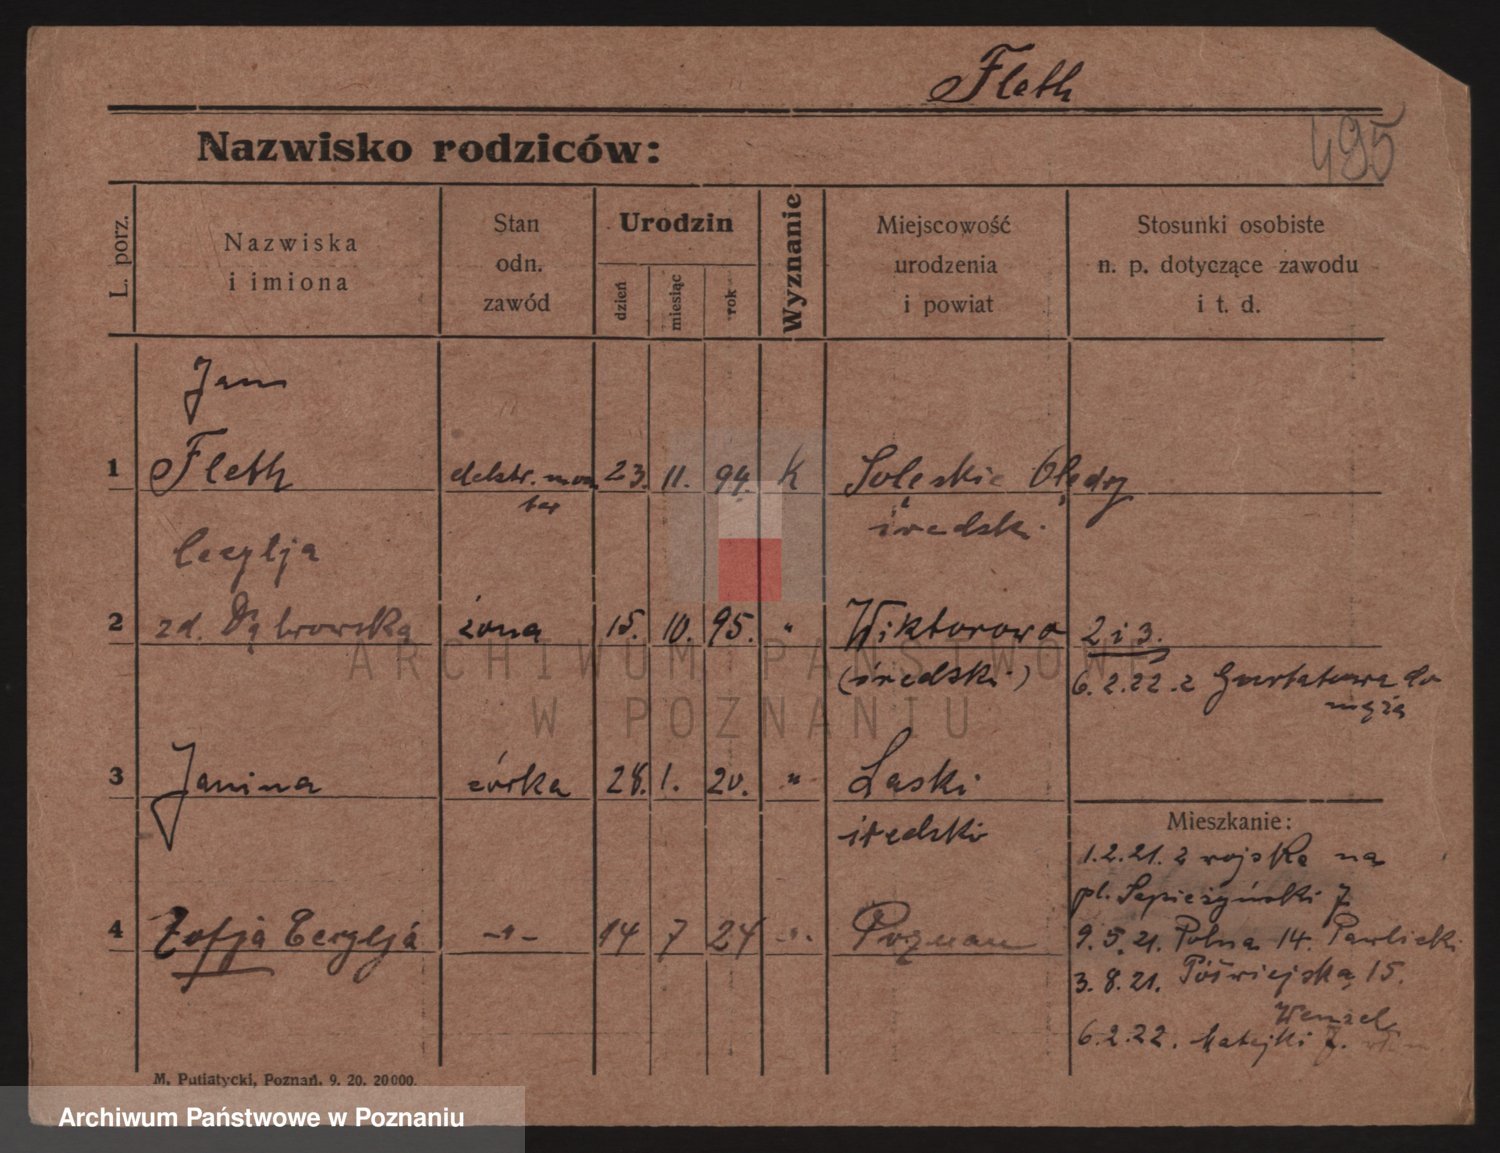 Fleth
495
Nazwisko rodziców:
L. porz.
Nazwiska
i imiona
Stan
odn.
zawód
Urodzin
dzień
miesiąc
rok
Wyznanie
Miejscowość
urodzenia
i powiat
Stosunki osobiste
n. p. dotyczące zawodu
i t. d.
Jan
1 Fleth elektr. mon 23. 11. 94. K Soleskie Olędry
ter
średzki
Cecylja
2 zd. Dąbrowska żona 15. 10. 95. " Wiktorowo 2 i 3.
(średzki) 6.2.22. z do
męża
3 Janina córka 28. 1. 20. " Laski
średzki
Mieszkanie:
1.2.21. z wojska na
pl. Sapieżyński 7
4 Zofja Cecylja -"- 14 7 24 -"- Poznań
9.5.21. Polna 14. Pawlicki
3.8.21. Półwiejska 15.
Wenzel
6.2.22. Matejki 7.
M. Putiatycki, Poznań. 9. 20. 20000.
ARCHIWUM PAŃSTWOWE
W POZNANIU
Archiwum Państwowe w Poznaniu